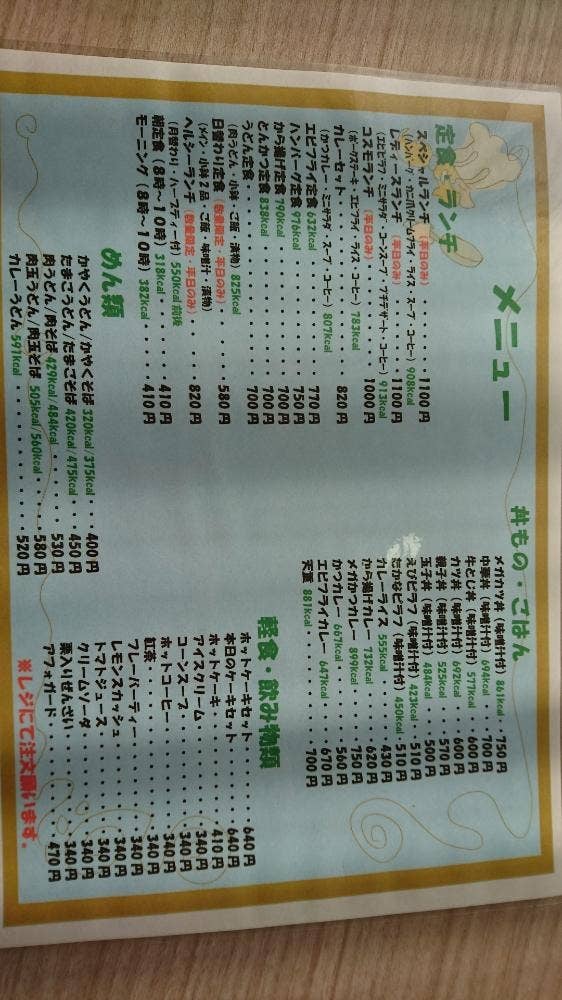 メニュー
定食・ランチ
スペシャルランチ (平日のみ)・・・・・1100円
(ハンバーグ・カニ爪クリームフライ・ライス・スープ・コーヒー) 908kcal
レディースランチ (平日のみ)・・・・・1100円
(エビピラフ・ミニサラダ・コーンスープ・プチデザート・コーヒー) 913kcal
コスモランチ (平日のみ)・・・・・1000円
(ポークステーキ・エビフライ・ライス・コーヒー) 783kcal
カレーセット・・・・・820円
(かつカレー・ミニサラダ・スープ・コーヒー) 807kcal
エビフライ定食 632kcal・・・・・770円
ハンバーグ定食 976kcal・・・・・750円
から揚げ定食 790kcal・・・・・700円
とんかつ定食 838kcal・・・・・700円
うどん定食・・・・・700円
(肉うどん・小鉢・ご飯・漬物) 825kcal
日替わり定食 (数量限定・平日のみ)・・・580円
(メイン・小鉢2品・ご飯・味噌汁・漬物)
ヘルシーランチ (数量限定・平日のみ)・・820円
(月替わり・ハーブティー付) 550kcal前後
朝定食 (8時～10時) 318kcal・・・・410円
モーニング (8時～10時) 382kcal・・・410円
めん類
かやくうどん/かやくそば 320kcal/375kcal・・400円
たまごうどん/たまごそば 420kcal/475kcal・・450円
肉うどん/肉そば 429kcal/484kcal・・・・530円
肉玉うどん/肉玉そば 505kcal/560kcal・・・580円
カレーうどん 591kcal・・・・・520円
丼もの・ごはん
メガカツ丼 (味噌汁付) 861kcal・・750円
中華丼 (味噌汁付) 694kcal・・・700円
牛とじ丼 (味噌汁付) 577kcal・・・600円
カツ丼 (味噌汁付) 692kcal・・・600円
親子丼 (味噌汁付) 525kcal・・・570円
玉子丼 (味噌汁付) 484kcal・・・500円
えびピラフ (味噌汁付) 423kcal・・510円
たかなピラフ (味噌汁付) 450kcal・510円
カレーライス 555kcal・・・・・430円
から揚げカレー 732kcal・・・・620円
メガかつカレー 899kcal・・・・750円
かつカレー 667kcal・・・・・560円
エビフライカレー 647kcal・・・670円
天重 881kcal・・・・・700円
軽食・飲み物類
ホットケーキセット・・・・640円
本日のケーキセット・・・・640円
ホットケーキ・・・・・410円
アイスクリーム・・・・・340円
コーンスープ・・・・・340円
ホットコーヒー・・・・・340円
紅茶・・・・・340円
フレーバーティー・・・・・340円
レモンスカッシュ・・・・・340円
トマトジュース・・・・・340円
クリームソーダ・・・・・340円
栗入りぜんざい・・・・・340円
アフォガード・・・・・470円
※レジにて注文願います。